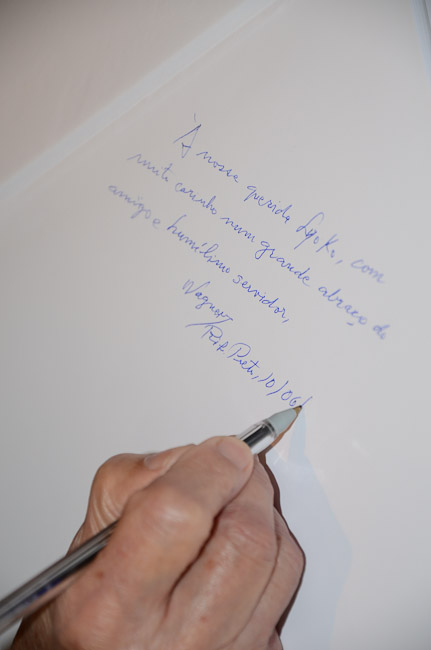 À nossa querida Lyoki, com
muito carinho num grande abraço do
amigo e humílimo servidor,
Wagner
Rib. Preto, 10/06/